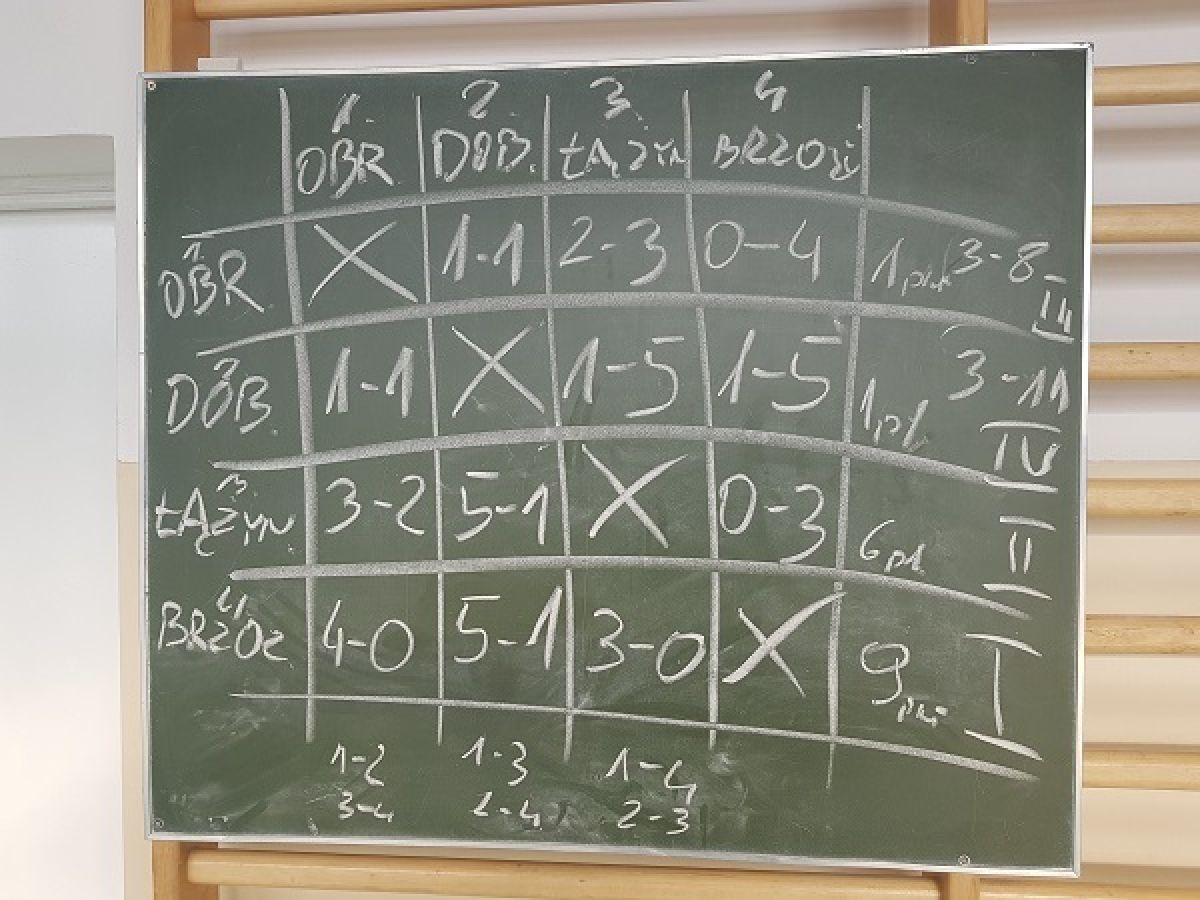 1. 2. 3. 4
OBR. DOB. ŁĄŻYN BRZOZY
1 OBR. X 1-1 2-3 0-4 1 pkt 3-8 III
2 DOB. 1-1 X 1-5 1-5 1 pkt 3-11 IV
3. ŁĄŻYN 3-2 5-1 X 0-3 6 pkt II
4. BRZOZ. 4-0 5-1 3-0 X 9 pkt I
1-2 1-3 1-4
3-4 2-4 2-3